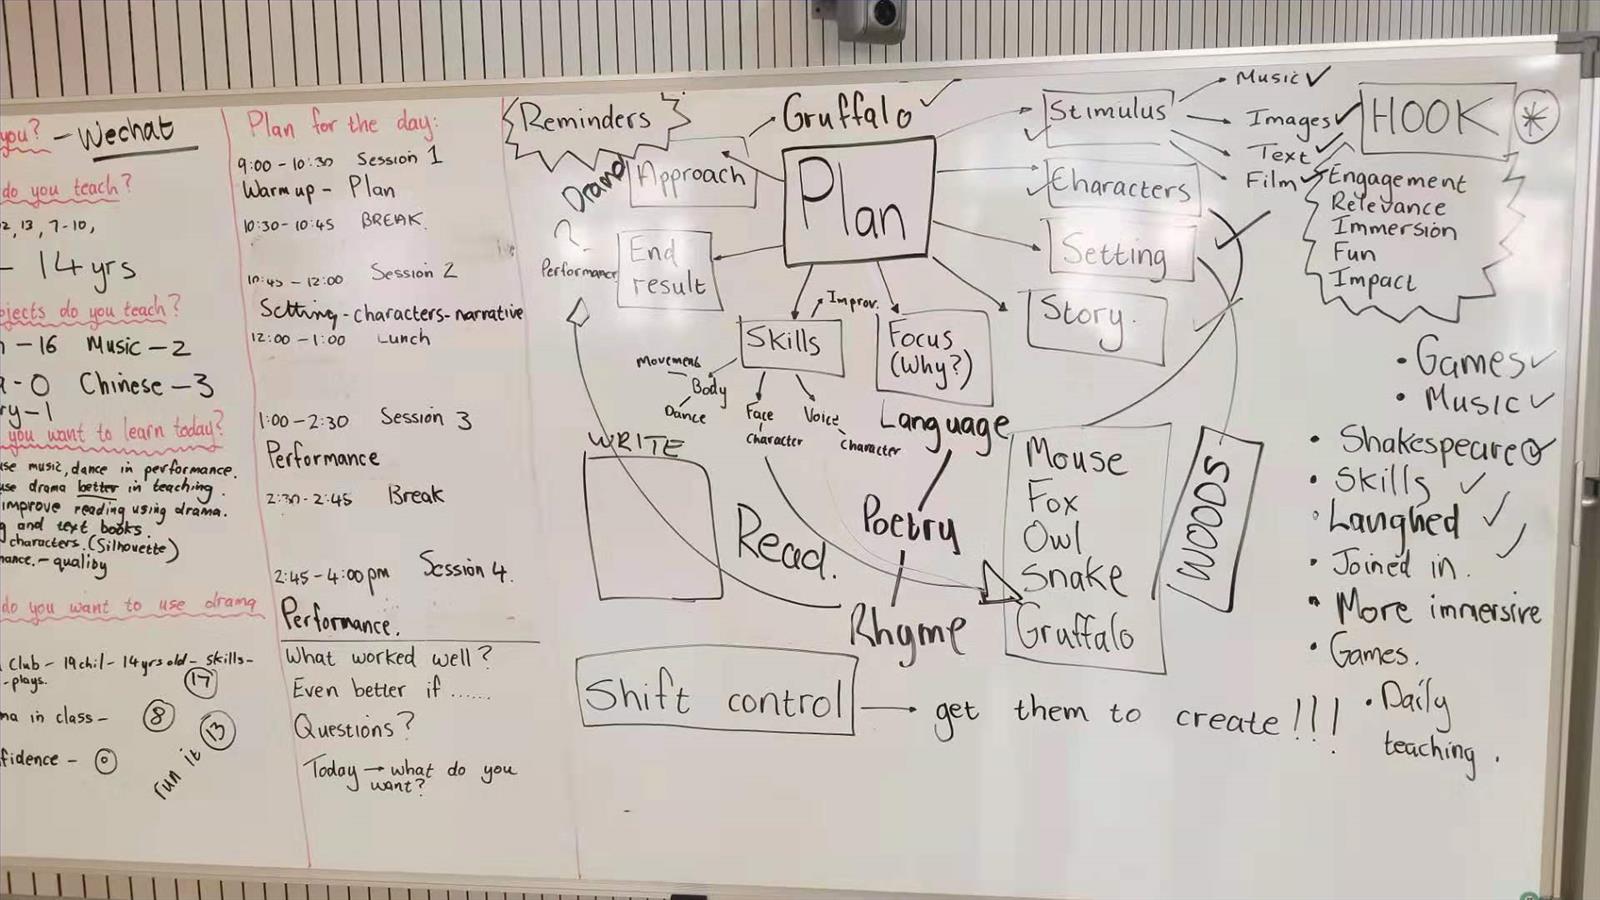 you? - Wechat
do you teach?
2, 13, 7-10,
- 14 yrs
jects do you teach?
-16 Music - 2
-0 Chinese - 3
ry-1
you want to learn today?
use music, dance in performance.
use drama better in teaching.
improve reading using drama.
g and text books.
characters. (Silhouette)
mance. - quality
do you want to use drama
Club - 19 chil - 14 yrs old - skills -
- plays.
17
ma in class - 8
13
fidence - 0
run it
Plan for the day:
9:00 - 10:30 Session 1
Warm up - Plan
10:30 - 10:45 BREAK.
10:45 - 12:00 Session 2
Setting - characters - narrative
12:00 - 1:00 Lunch
1:00 - 2:30 Session 3
Performance
2:30 - 2:45 Break
2:45 - 4:00pm Session 4.
Performance.
What worked well?
Even better if ......
Questions?
Today → what do you
want?
Reminders
Gruffalo ✓
Drama
Approach
Plan
?
Performance
End
result
Improv.
Skills
Movement
Body
Dance
Face
character
Voice
character
Focus
(Why?)
Language
Poetry
Rhyme
WRITE
Read.
Stimulus
Music ✓
Images ✓
Text ✓
Film ✓
Characters
Setting
Story.
HOOK *
Engagement
Relevance
Immersion
Fun
Impact
Mouse
Fox
Owl
Snake
Gruffalo
WOODS
Shift control → get them to create!!!
• Games ✓
• Music ✓
• Shakespeare ✓
• Skills ✓
• Laughed ✓
• Joined in.
• More immersive
• Games.
• Daily
teaching.